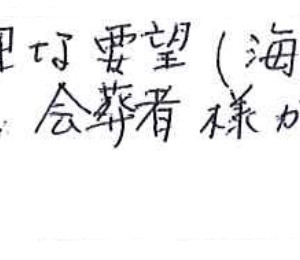 な要望(海
会葬者様か